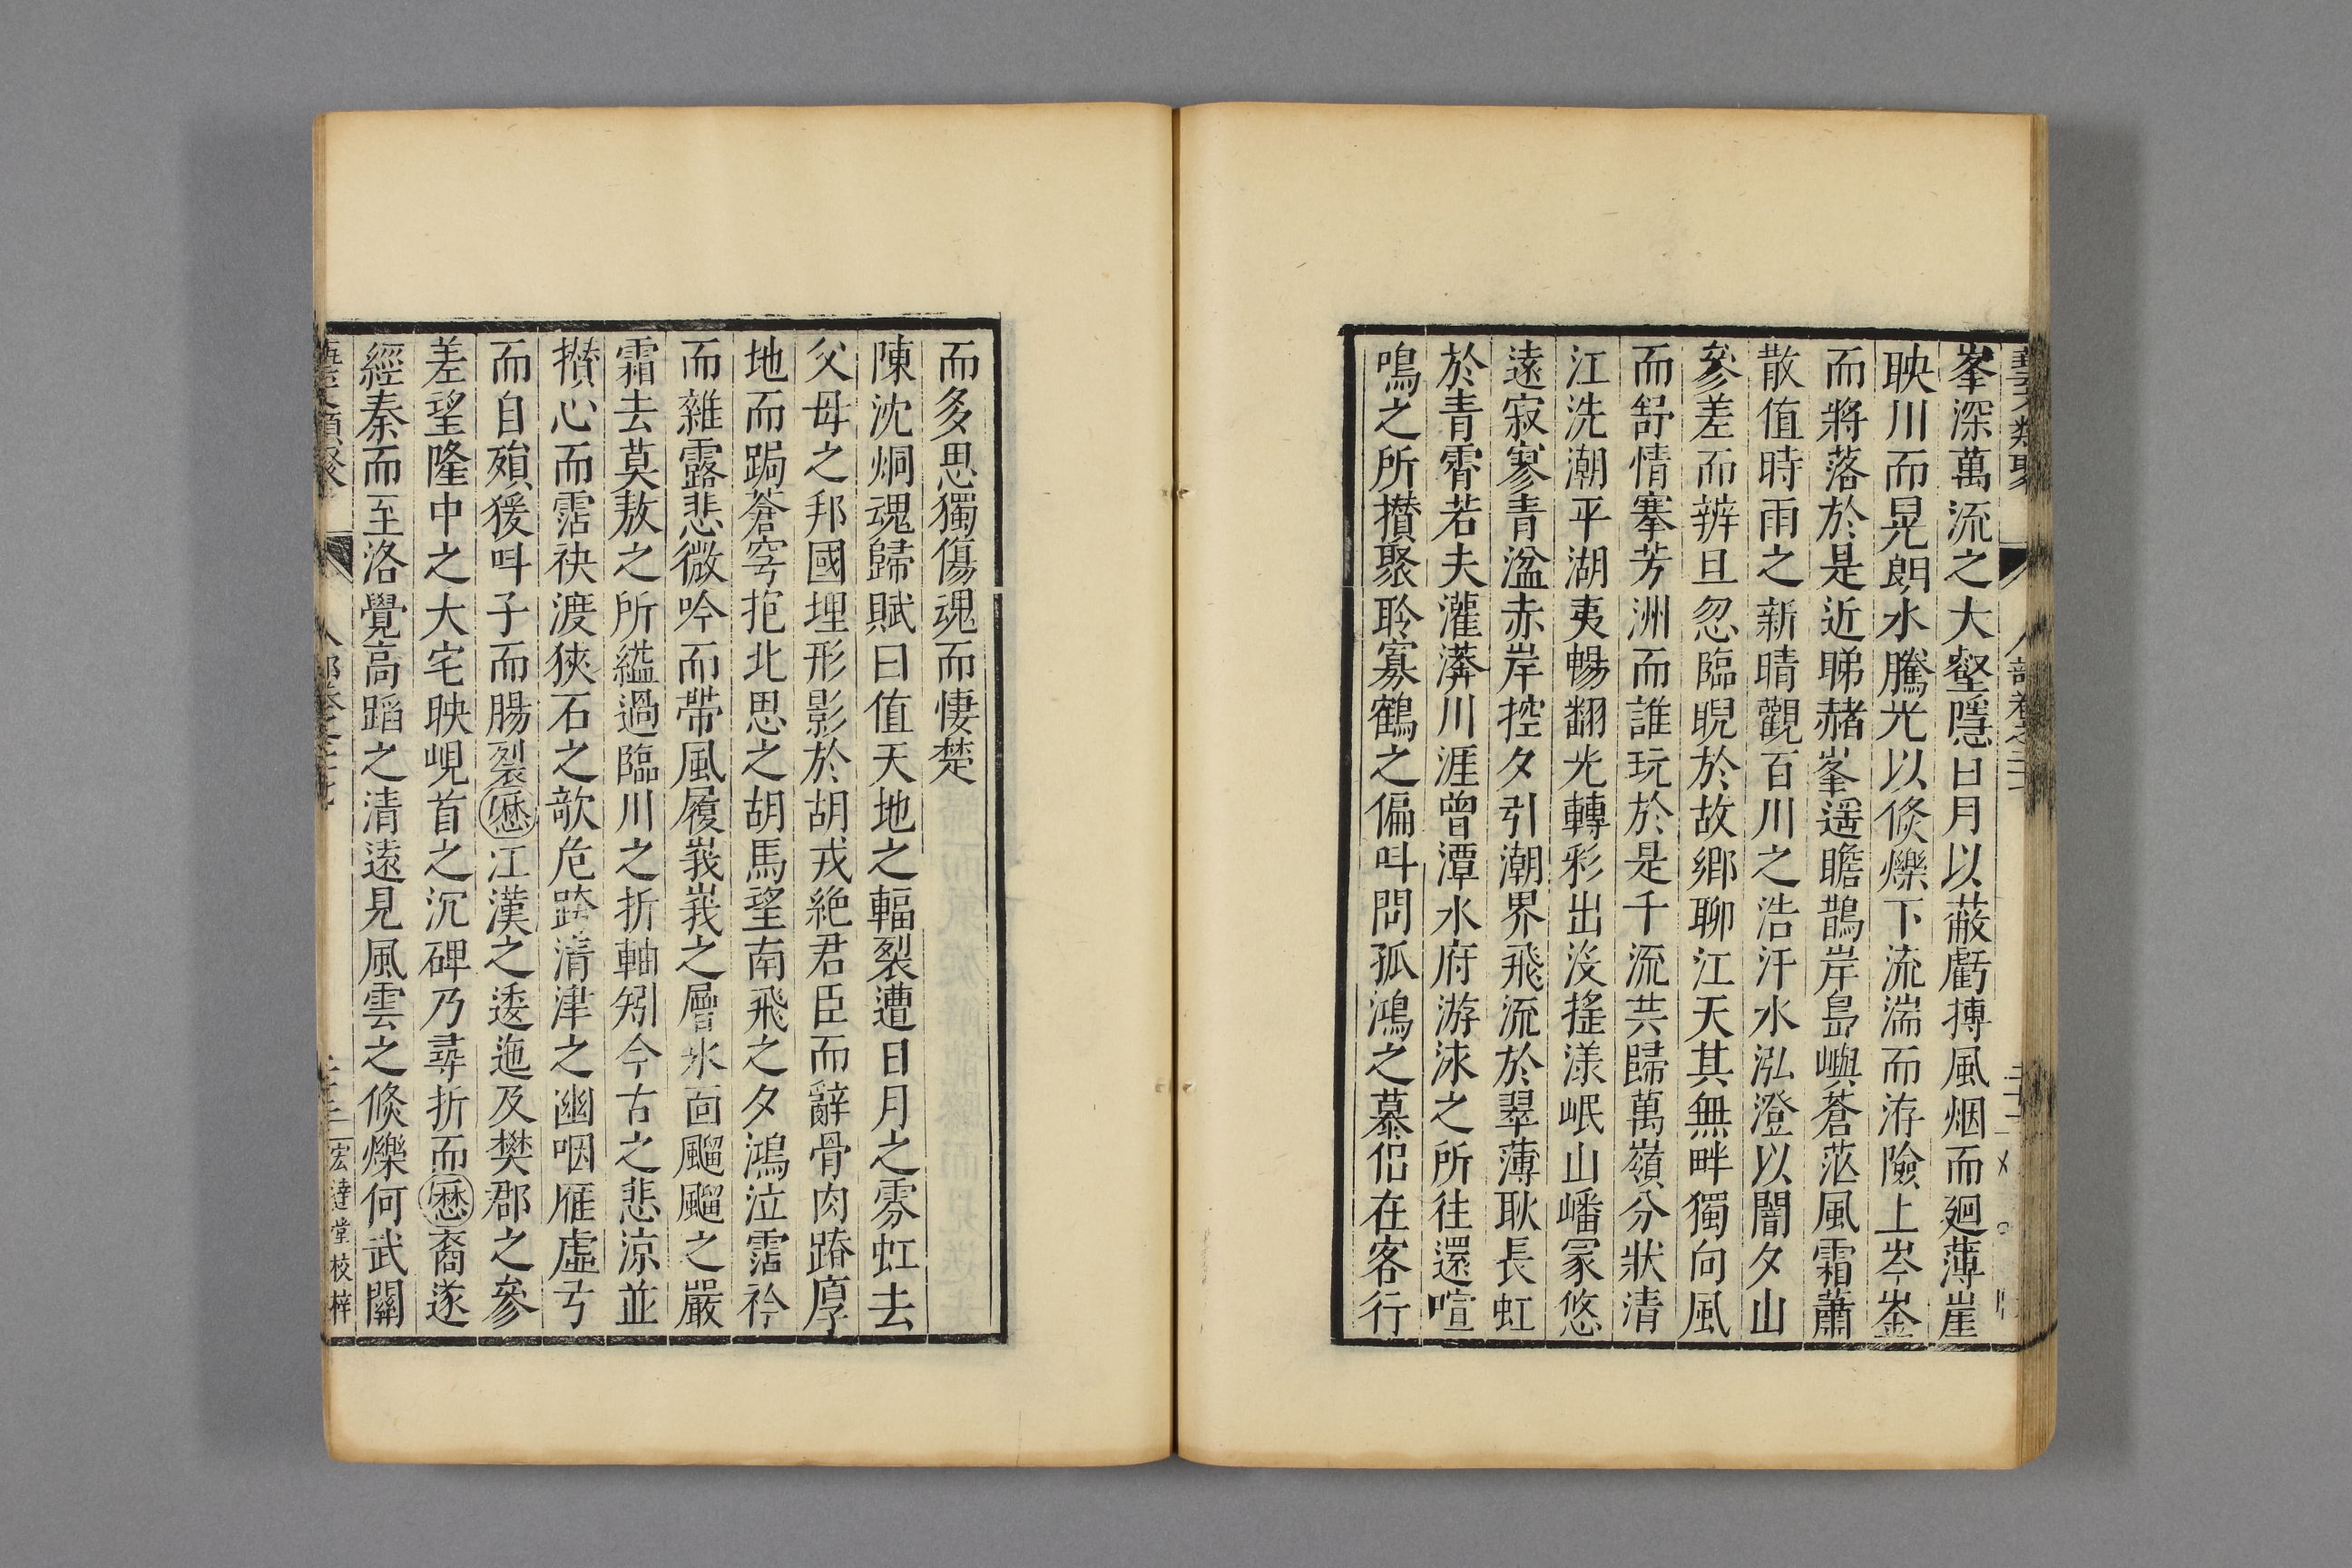 藝文類聚 人部卷之二十
峯深萬流之大壑隱日月以蔽虧摶風烟而廻薄崖
映川而晃朗水騰光以倏爍下流湍而洊險上岑崟
而將落於是近睇赭峯遥瞻鵲岸島嶼蒼茫風霜蕭
散值時雨之新晴觀百川之浩汗水泓澄以闇夕山
參差而辨旦忽臨睨於故鄉聊江天其無畔獨向風
而舒情搴芳洲而誰玩於是千流共歸萬嶺分狀清
江洗潮平湖夷暢翻光轉彩出沒摇漾岷山嶓冢悠
遠寂寥青湓赤岸控夕引潮界飛流於翠薄耿長虹
於青霄若夫灌莾川涯曾潭水府游泳之所往還喧
鳴之所攅聚聆寡鶴之偏叫問孤鴻之慕侣在客行
而多思獨傷魂而悽楚
陳沈炯魂歸賦曰值天地之輻裂遭日月之雰虹去
父母之邦國埋形影於胡戎絶君臣而辭骨肉蹐厚
地而跼蒼穹抱北思之胡馬望南飛之夕鴻泣霑衿
而雜露悲微吟而帶風履峩峩之層氷面飀飀之嚴
霜去莫敖之所縊過臨川之折軸矧今古之悲凉並
攅心而霑袂渡狹石之欹危跨清津之幽咽雁虛弓
而自殞猨叫子而腸裂歷江漢之逶迤及樊郡之參
差望隆中之大宅映峴首之沉碑乃尋折而歷裔遂
經秦而至洛覺高蹈之清遠見風雲之倏爍何武關
宏達堂校梓